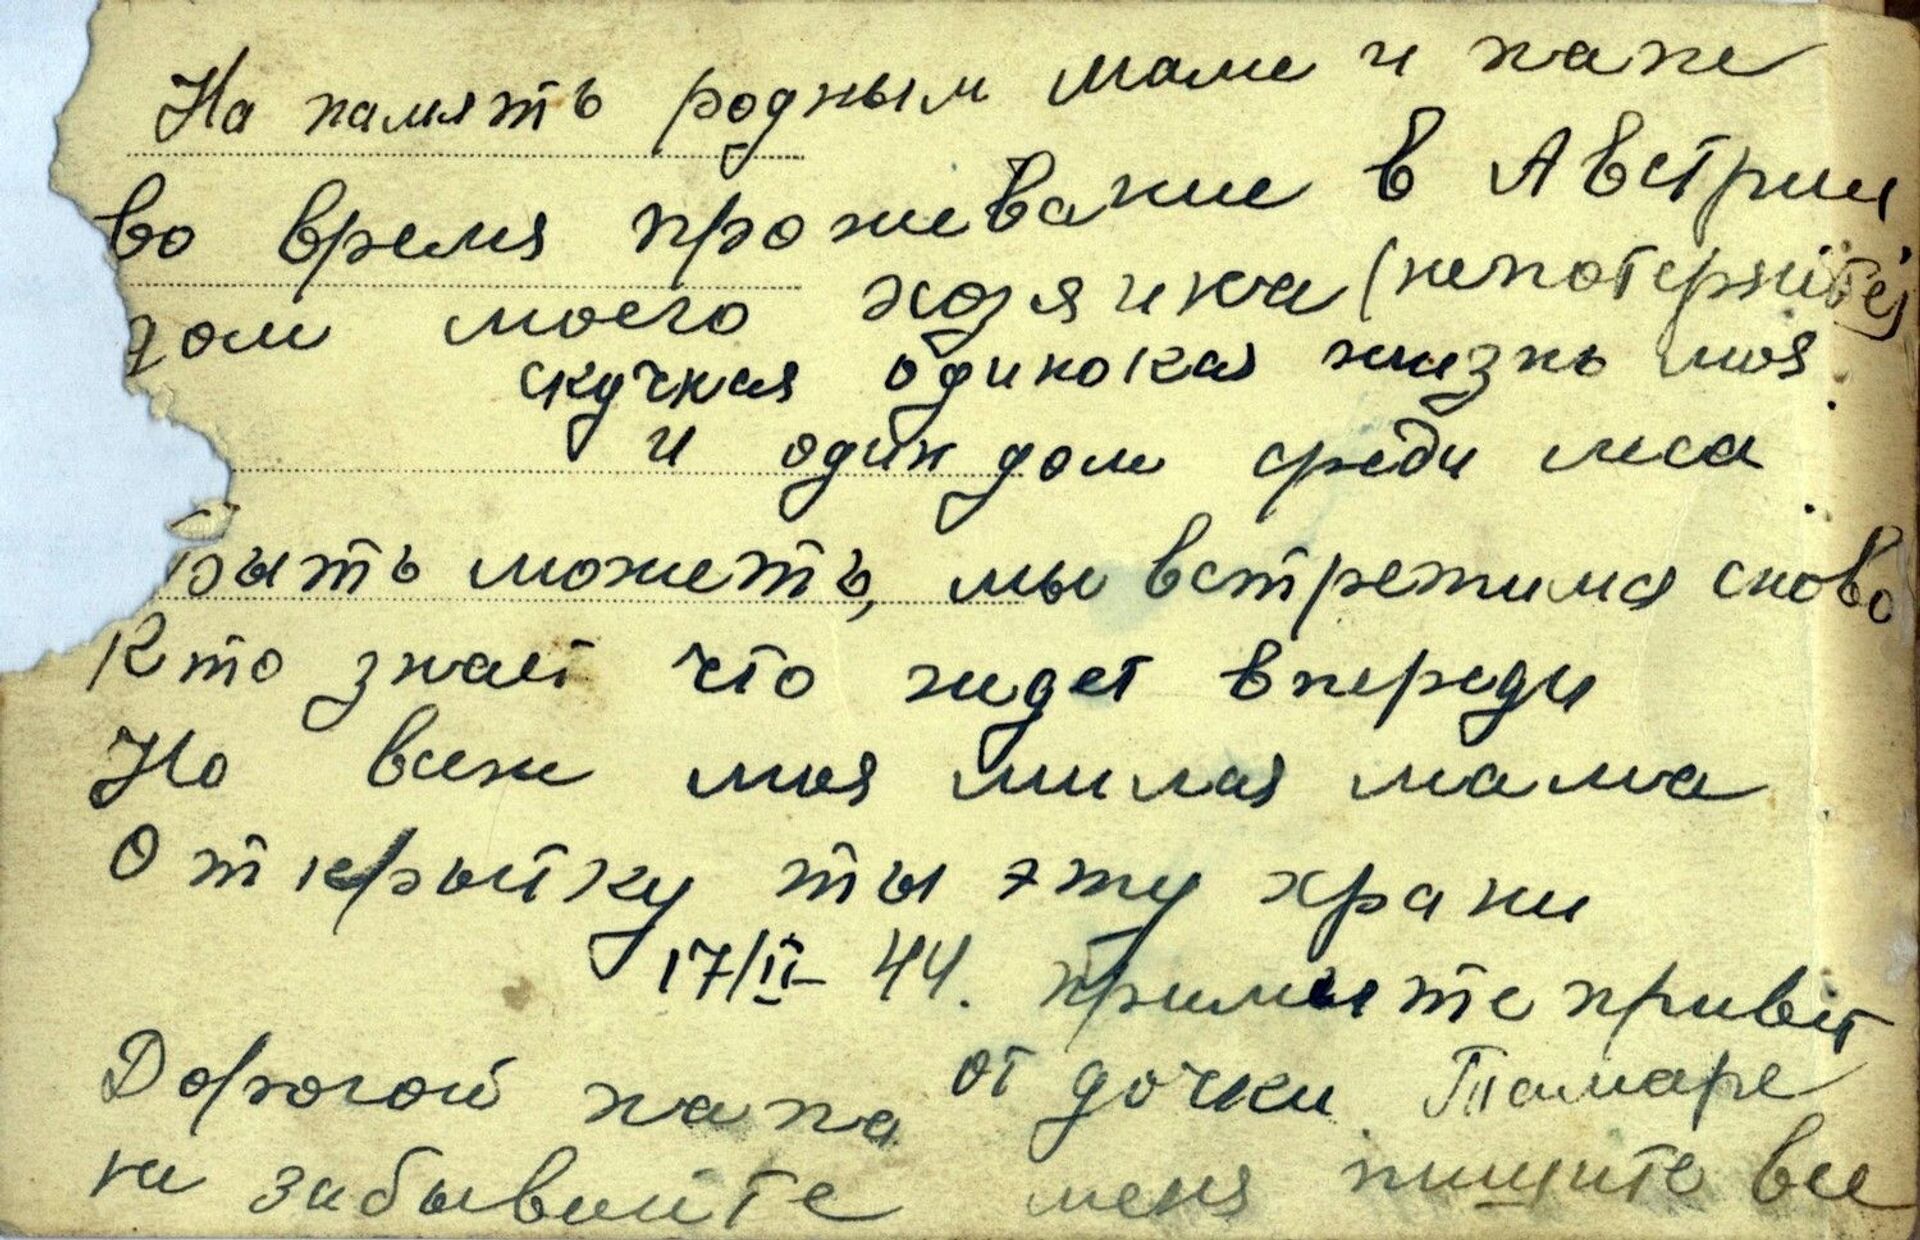 На память родным маме и папе
во время прожевание в Австрии
дом моего хозяина (непотеряйте)
скучная одинокая жизнь моя
и один дом среди леса
Быть можеть, мы встретимся сново
Кто знает что ждет впереди
Но всеж моя милая мама
Открытку ты эту храни
17/II-44. примите привет
Дорогой папа от дочки Тамаре
не забывайте меня пишите все